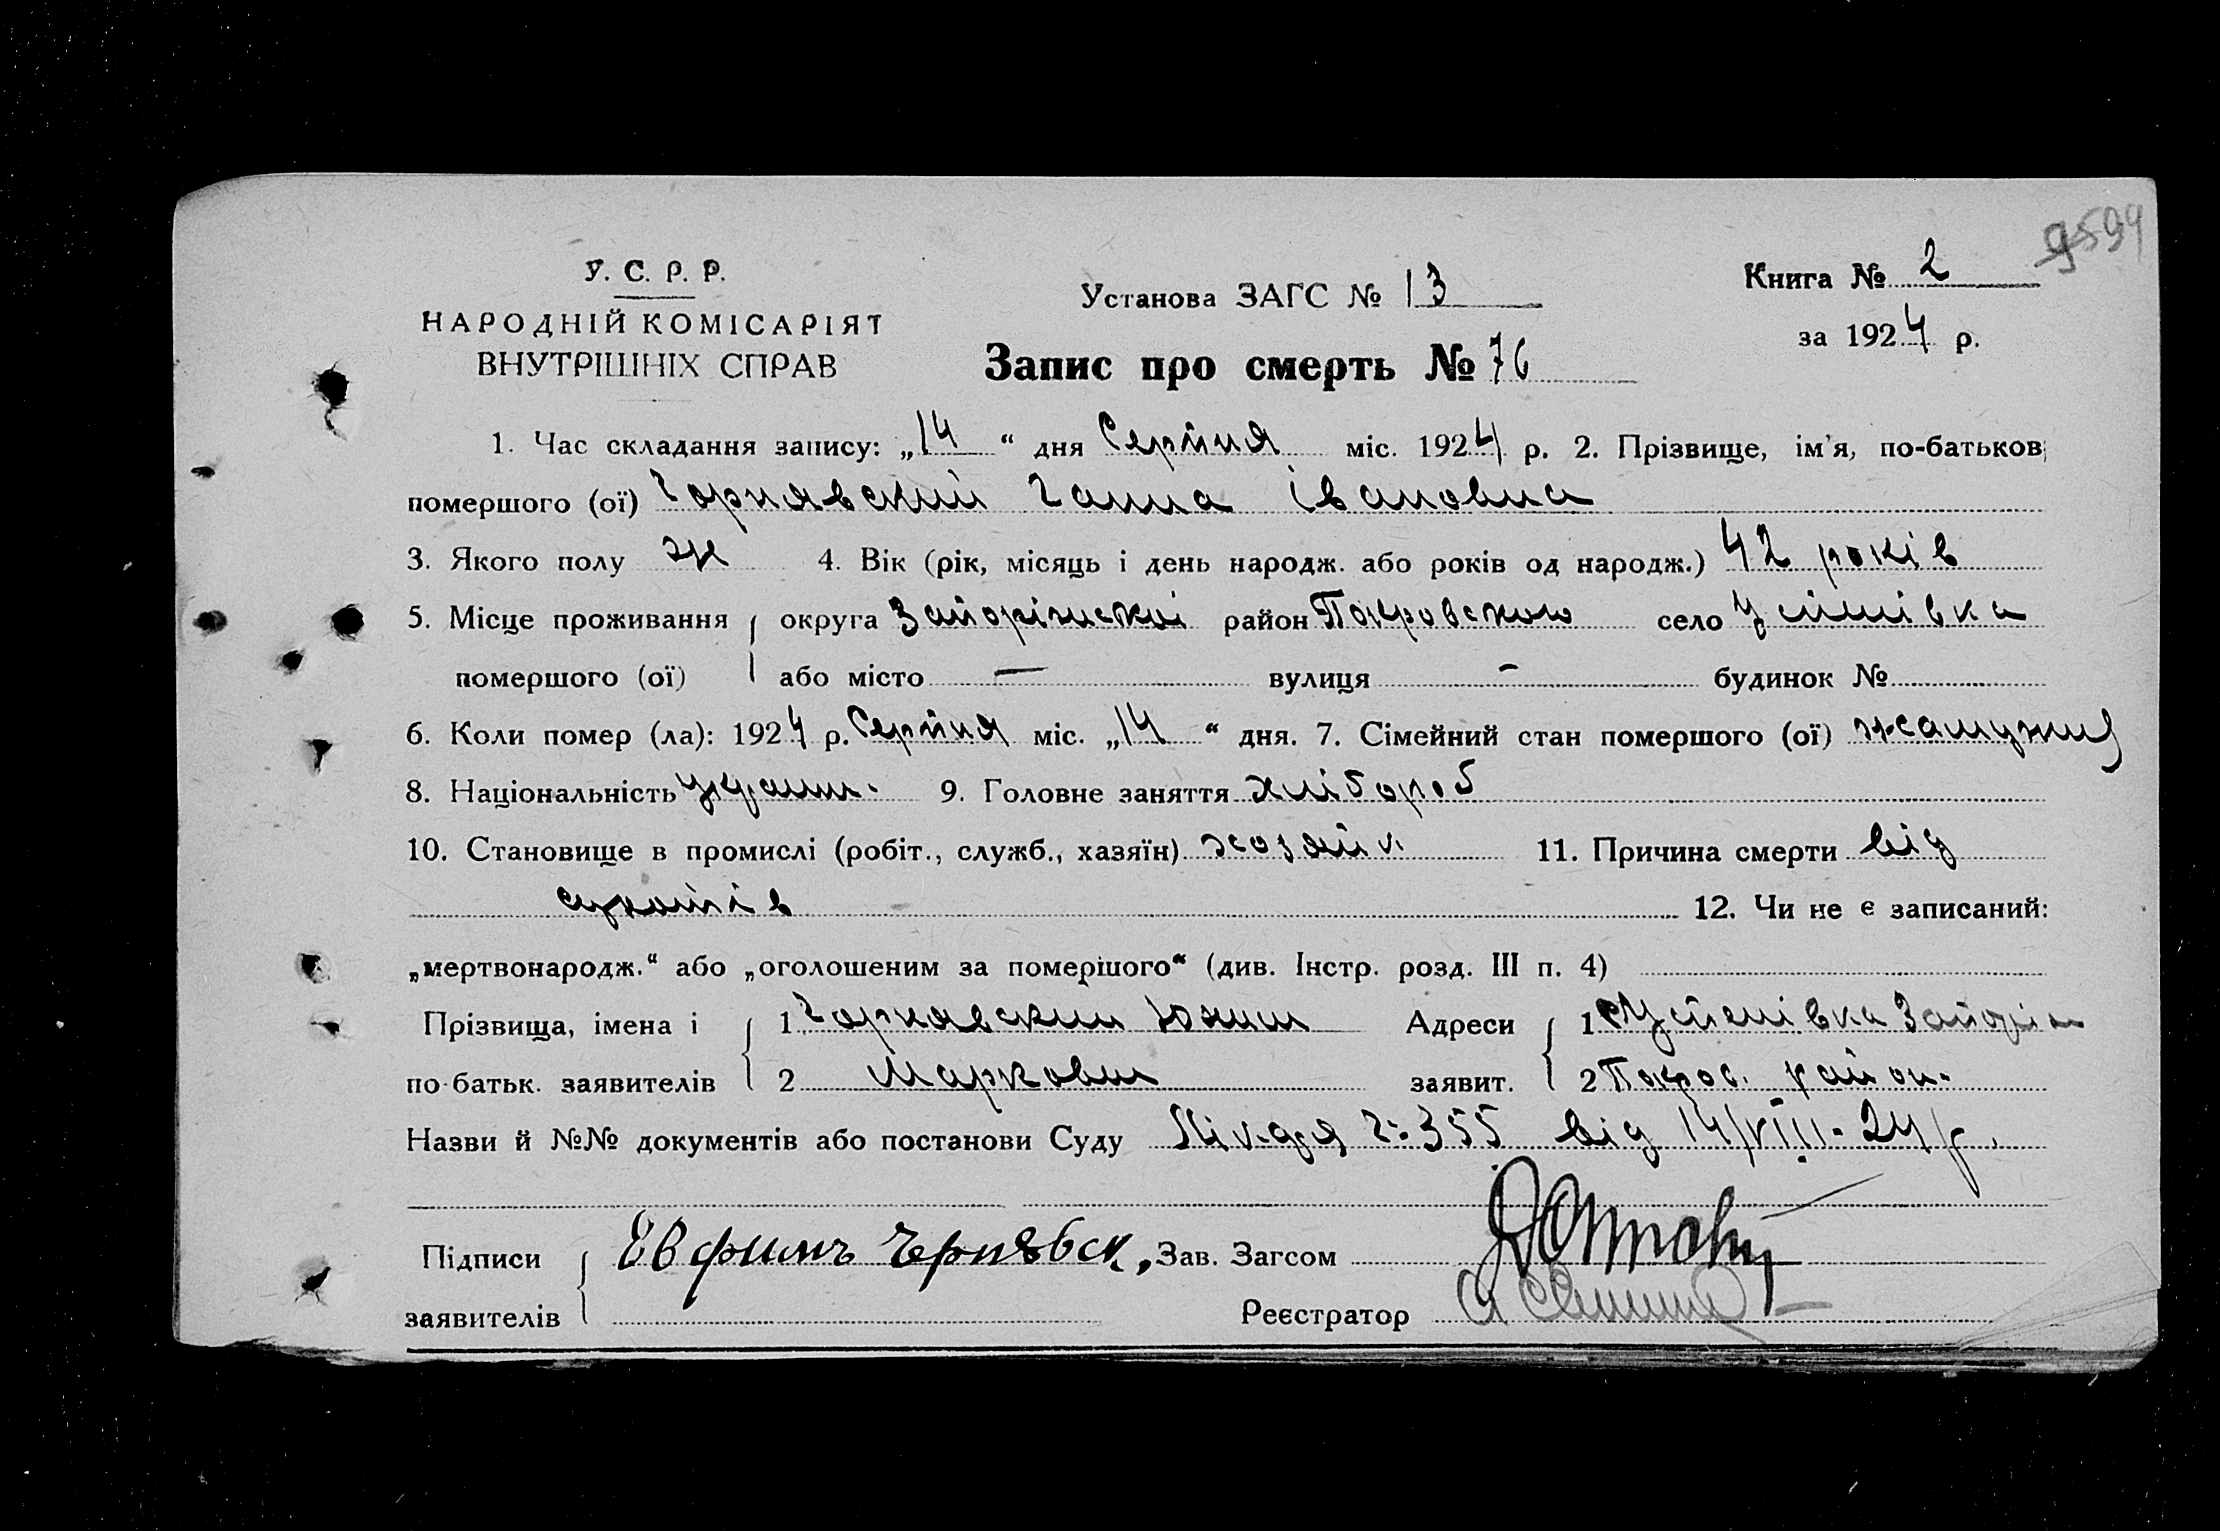 У. С. Р. Р.
НАРОДНІЙ КОМІСАРІЯТ
ВНУТРІШНІХ СПРАВ
Установа ЗАГС № 13
Запис про смерть № 76
Книга № 2
за 1924 р.
1. Час складання запису: „14“ дня Серпня міс. 1924 р. 2. Прізвище, ім'я, по-батькові
помершого (ої) Чорнявский Ганна Івановна
3. Якого полу ж 4. Вік (рік, місяць і день народж. або років од народж.) 42 років
5. Місце проживання округа Запоріжської район Покровського село Успінівка
помершого (ої) або місто — вулиця - будинок №
6. Коли помер (ла): 1924 р. Серпня міс. „14“ дня. 7. Сімейний стан помершого (ої)
8. Національність україн. 9. Головне заняття хлібороб
10. Становище в промислі (робіт., служб., хазяїн) хозяйн 11. Причина смерти від
сухотів 12. Чи не є записаний:
„мертвонародж.“ або „оголошеним за помершого“ (див. Інстр. розд. III п. 4)
Прізвища, імена і 1 Чорнявский Юхим Адреси 1 Успенівка Запоріж
по-батьк. заявителів 2 Маркович заявит. 2 Покров. район.
Назви й №№ документів або постанови Суду 355 від 14/VIII-24 р.
Підписи Евфимъ Чернявск, Зав. Загсом
заявителів Реєстратор